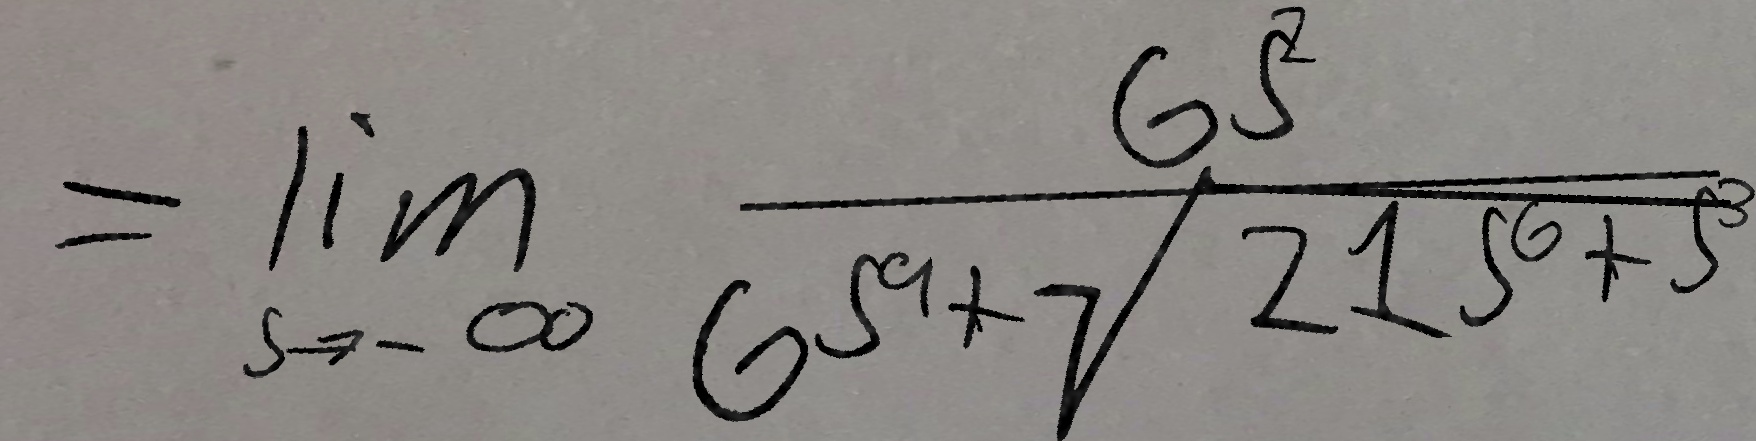 $= \lim_{s \to -\infty} \frac{6s^2}{6s^9 + \sqrt{21s^6 + s^3}}$